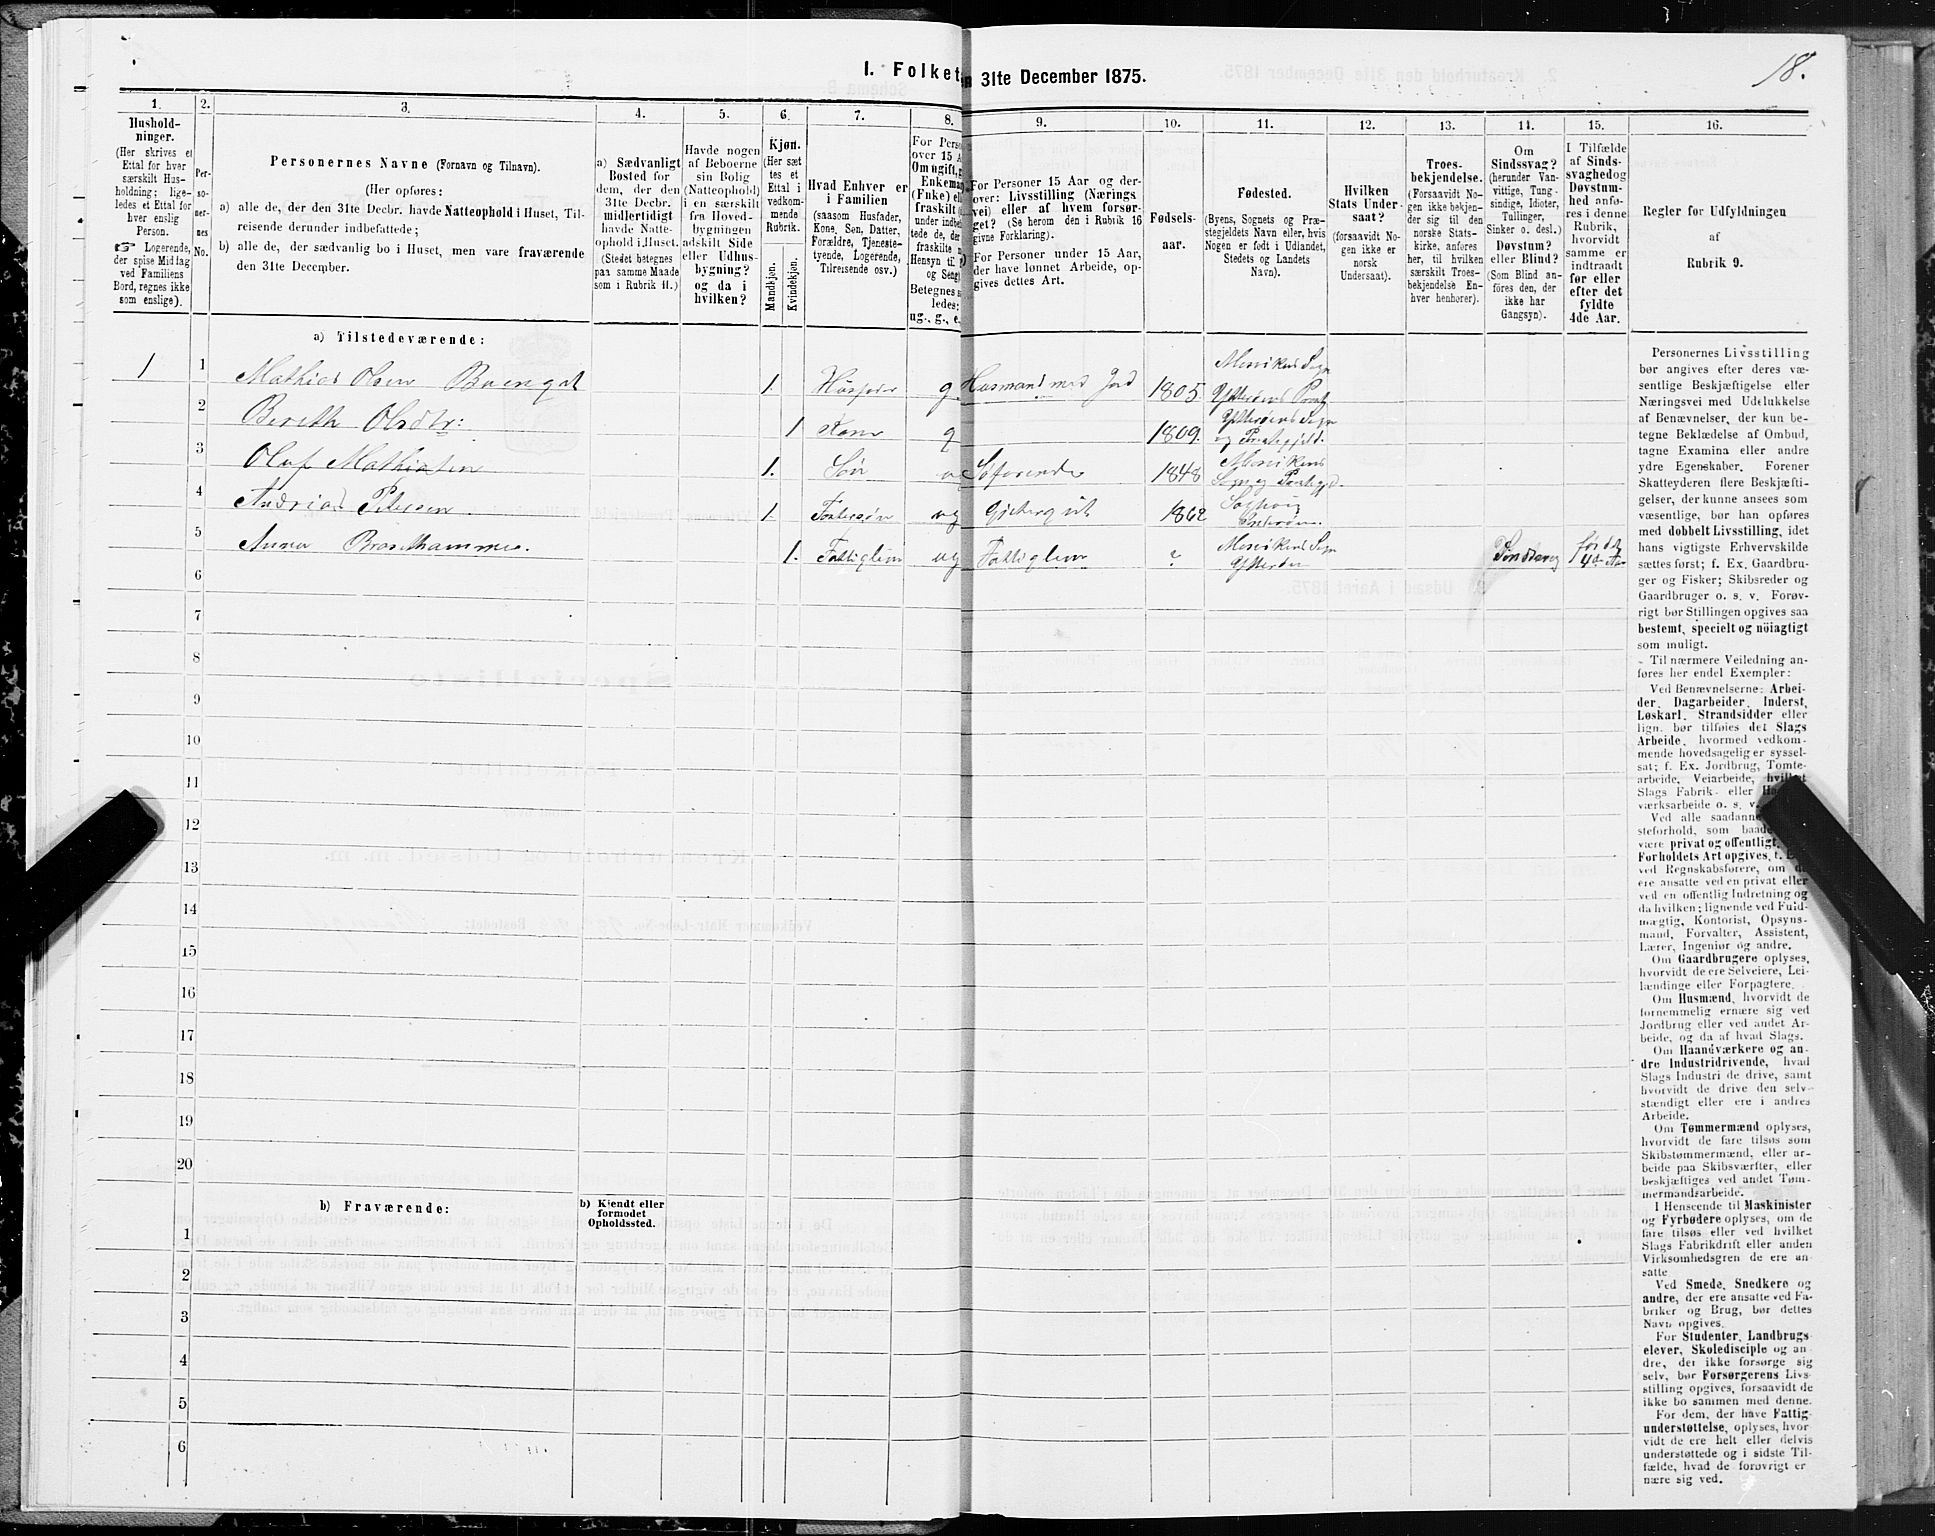 18.
I. Folket
n 31te December 1875.
1. 2. 3. 4. 5. 6. 7. 8. 9. 10. 11. 12. 13. 14. 15. 16.
Hushold-
ninger.
(Her skrives et
Ettal for hver
særskilt Hus-
holdning; lige-
ledes et Ettal for
hver enslig
Person.
☞ Logerende,
der spise Middag
ved Familiens
Bord, regnes ikke
som enslige).
Per-
so-
ner-
nes
No.
Personernes Navne (Fornavn og Tilnavn).
(Her opføres:
a) alle de, der den 31te Decbr. havde Natteophold i Huset, Til-
reisende derunder indbefattede;
b) alle de, der sædvanlig bo i Huset, men vare fraværende
den 31te December.
a) Sædvanligt
Bosted for
dem, der den
31te Decbr.
midlertidigt
havde Natte-
ophold i Huset.
(Stedet betegnes
paa samme Maade
som i Rubrik 11.)
Havde nogen
af Beboerne
sin Bolig
(Natteophold)
i en særskilt
fra Hoved-
bygningen
adskilt Side
eller Udhus-
bygning?
og da i
hvilken?
Kjøn.
(Her sæt
tes et
Ettal i
vedkom-
mende
Rubrik.
Mandkjøn.
Kvindekjøn.
Hvad Enhver er
i Familien
(saasom Husfader,
Kone, Søn, Datter,
Forældre, Tjeneste-
tyende, Logerende,
Tilreisende osv.)
For Perso
over 15 A
Om ugift, g
Enkeman
(Enke) ell
fraskilt
under indbe
tede de, der
fraskilte
Hensyn til
og Seng
Betegnes s
ledes:
ug., g., e.
For Personer 15 Aar og der-
over: Livsstilling (Nærings
vei) eller af hvem forsør-
get? (Se herom den i Rubrik 16
givne Forklaring).
For Personer under 15 Aar,
der have lønnet Arbeide, op-
gives dettes Art.
Fødsels-
aar.
Fødested.
(Byens, Sognets og Præ-
stegjeldets Navn eller, hvis
Nogen er født i Udlandet,
Stedets og Landets
Navn).
Hvilken
Stats Under-
saat?
(forsaavidt No-
gen ikke er
norsk
Undersaat).
Troes-
bekjendelse.
(Forsaavidt No-
gen ikke bekjen-
der sig til den
norske Stats-
kirke, anføres
her, til hvilken
særskilt Troes-
bekjendelse En-
hver henhører).
Om
Sindssvag?
(herunder Van-
vittige, Tung-
sindige, Idioter,
Tullinger,
Sinker o. desl.)
Døvstum?
eller Blind?
(Som Blind an-
føres den, der
ikke har
Gangsyn).
I Tilfælde
af Sinds-
svaghed og
Døvstum-
hed anfø-
res i denne
Rubrik,
hvorvidt
samme er
indtraadt
før eller
efter det
fyldte
4de Aar.
Regler for Udfyldningen
af
Rubrik 9.
a) Tilstedeværende:
1 1 Mathias Olsen 1. Husfader g Husmand med Jord 1805. Mosvikens Sogn
Ytterøens Prstg
2 Bereth Olsdtr: 1 Kone g 1809. Ytterøens Sogn
og Prstegjeld.
3 Oluf Mathiasen 1. Søn Søfarende 1848 Mosvikens
Sogn og
4 Andrias Petersen 1. Fostersøn ug 1862
5 Anna 1. Fattiglem ug Fattiglem ? Mosvikens Sogn
Ytterøen Sindssvag før det
4de Aar
6
7
8
9
10
11
12
13
14
15
16
17
18
19
20
b) Fraværende:
b) Kjendt eller
formodet
Opholdssted.
1
2
3
4
5
6
Personernes Livsstilling
bør angives efter deres væ-
sentlige Beskjæftigelse eller
Næringsvei med Udelukkelse
af Benævnelser, der kun be-
tegne Beklædelse af Ombud,
tagne Examina eller andre
ydre Egenskaber. Forener
Skatteyderen flere Beskjæfti-
gelser, der kunne ansees som
væsentlige, bør han opføres
med dobbelt Livsstilling, idet
hans vigtigste Erhvervskilde
sættes først; f. Ex. Gaardbru-
ger og Fisker; Skibsreder og
Gaardbruger o. s. v. Forøv-
rigt bør Stillingen opgives saa
bestemt, specielt og nöiagtigt
som muligt.
Til nærmere Veiledning an-
føres her endel Exempler:
Ved Benævnelserne: Arbei-
der, Dagarbeider, Inderst,
Løskarl, Strandsidder eller
lign. bør tilføies det Slags
Arbeide, hvormed vedkom-
mende hovedsagelig er syssel-
sat; f. Ex. Jordbrug, Tomte-
arbeide, Veiarbeide, hvilket
Slags Fabrik- eller
værksarbeide o. s. v.
Ved alle saadanne
steforhold, som baade
være privat og offentligt,
Forholdets Art opgives, f.
ved Regnskabsførere, om
ere ansatte ved en privat eller
ved en offentlig Indretning og
da hvilken; lignende ved Fuld-
mægtig, Kontorist, Opsyns-
mand, Forvalter, Assistent,
Lærer, Ingeniør og andre.
Om Gaardbrugere oplyses,
hvorvidt de ere Selveiere, Lei-
lændinge eller Forpagtere.
Om Husmænd, hvorvidt de
fornemmelig ernære sig ved
Jordbrug eller ved andet Ar-
beide, og da af hvad Slags.
Om Haandværkere og an-
dre Industridrivende, hvad
Slags Industri de drive, samt
hvorvidt de drive den selv-
stændigt eller ere i andres
Arbeide.
Om Tømmermænd oplyses,
hvorvidt de fare tilsøs som
Skibstømmermænd, eller ar-
beide paa Skibsværfter, eller
beskjæftiges ved andet Tøm-
mermandsarbeide.
I Henseende til Maskinister
og Fyrbødere oplyses, om de
fare tilsøs eller ved hvilket
Slags Fabrikdrift eller anden
Virksomhedsgren de ere an-
satte
Ved Smede, Snedkere og
andre, der ere ansatte ved Fa-
briker og Brug, bør dettes
Navn opgives.
For Studenter, Landbrugs-
elever, Skoledisciple og an-
dre, der ikke forsørge sig
selv, bør Forsørgerens Livs-
stilling opgives, forsaavidt de
ikke bo sammen med denne.
For dem, der have Fattig-
understøttelse, oplyses, hvor-
vidt de ere helt eller delvis
understøttede og i sidste Til-
fælde, hvad de forøvrigt er-
nære sig ved.